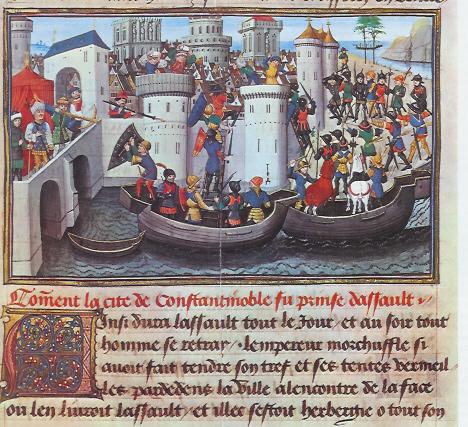 Com̃ent la cite de Constantinoble fu prinse dassault
Ainsi dura lassault tout le Jour, et au soir tout
homme se retray. lempereur morchuffle si
auoit fait tendre son tref et ses tentes vermeil
les pardedens la ville a lencontre de la face
ou len liuroit lassault, et illec sestoit herbergie o tout son